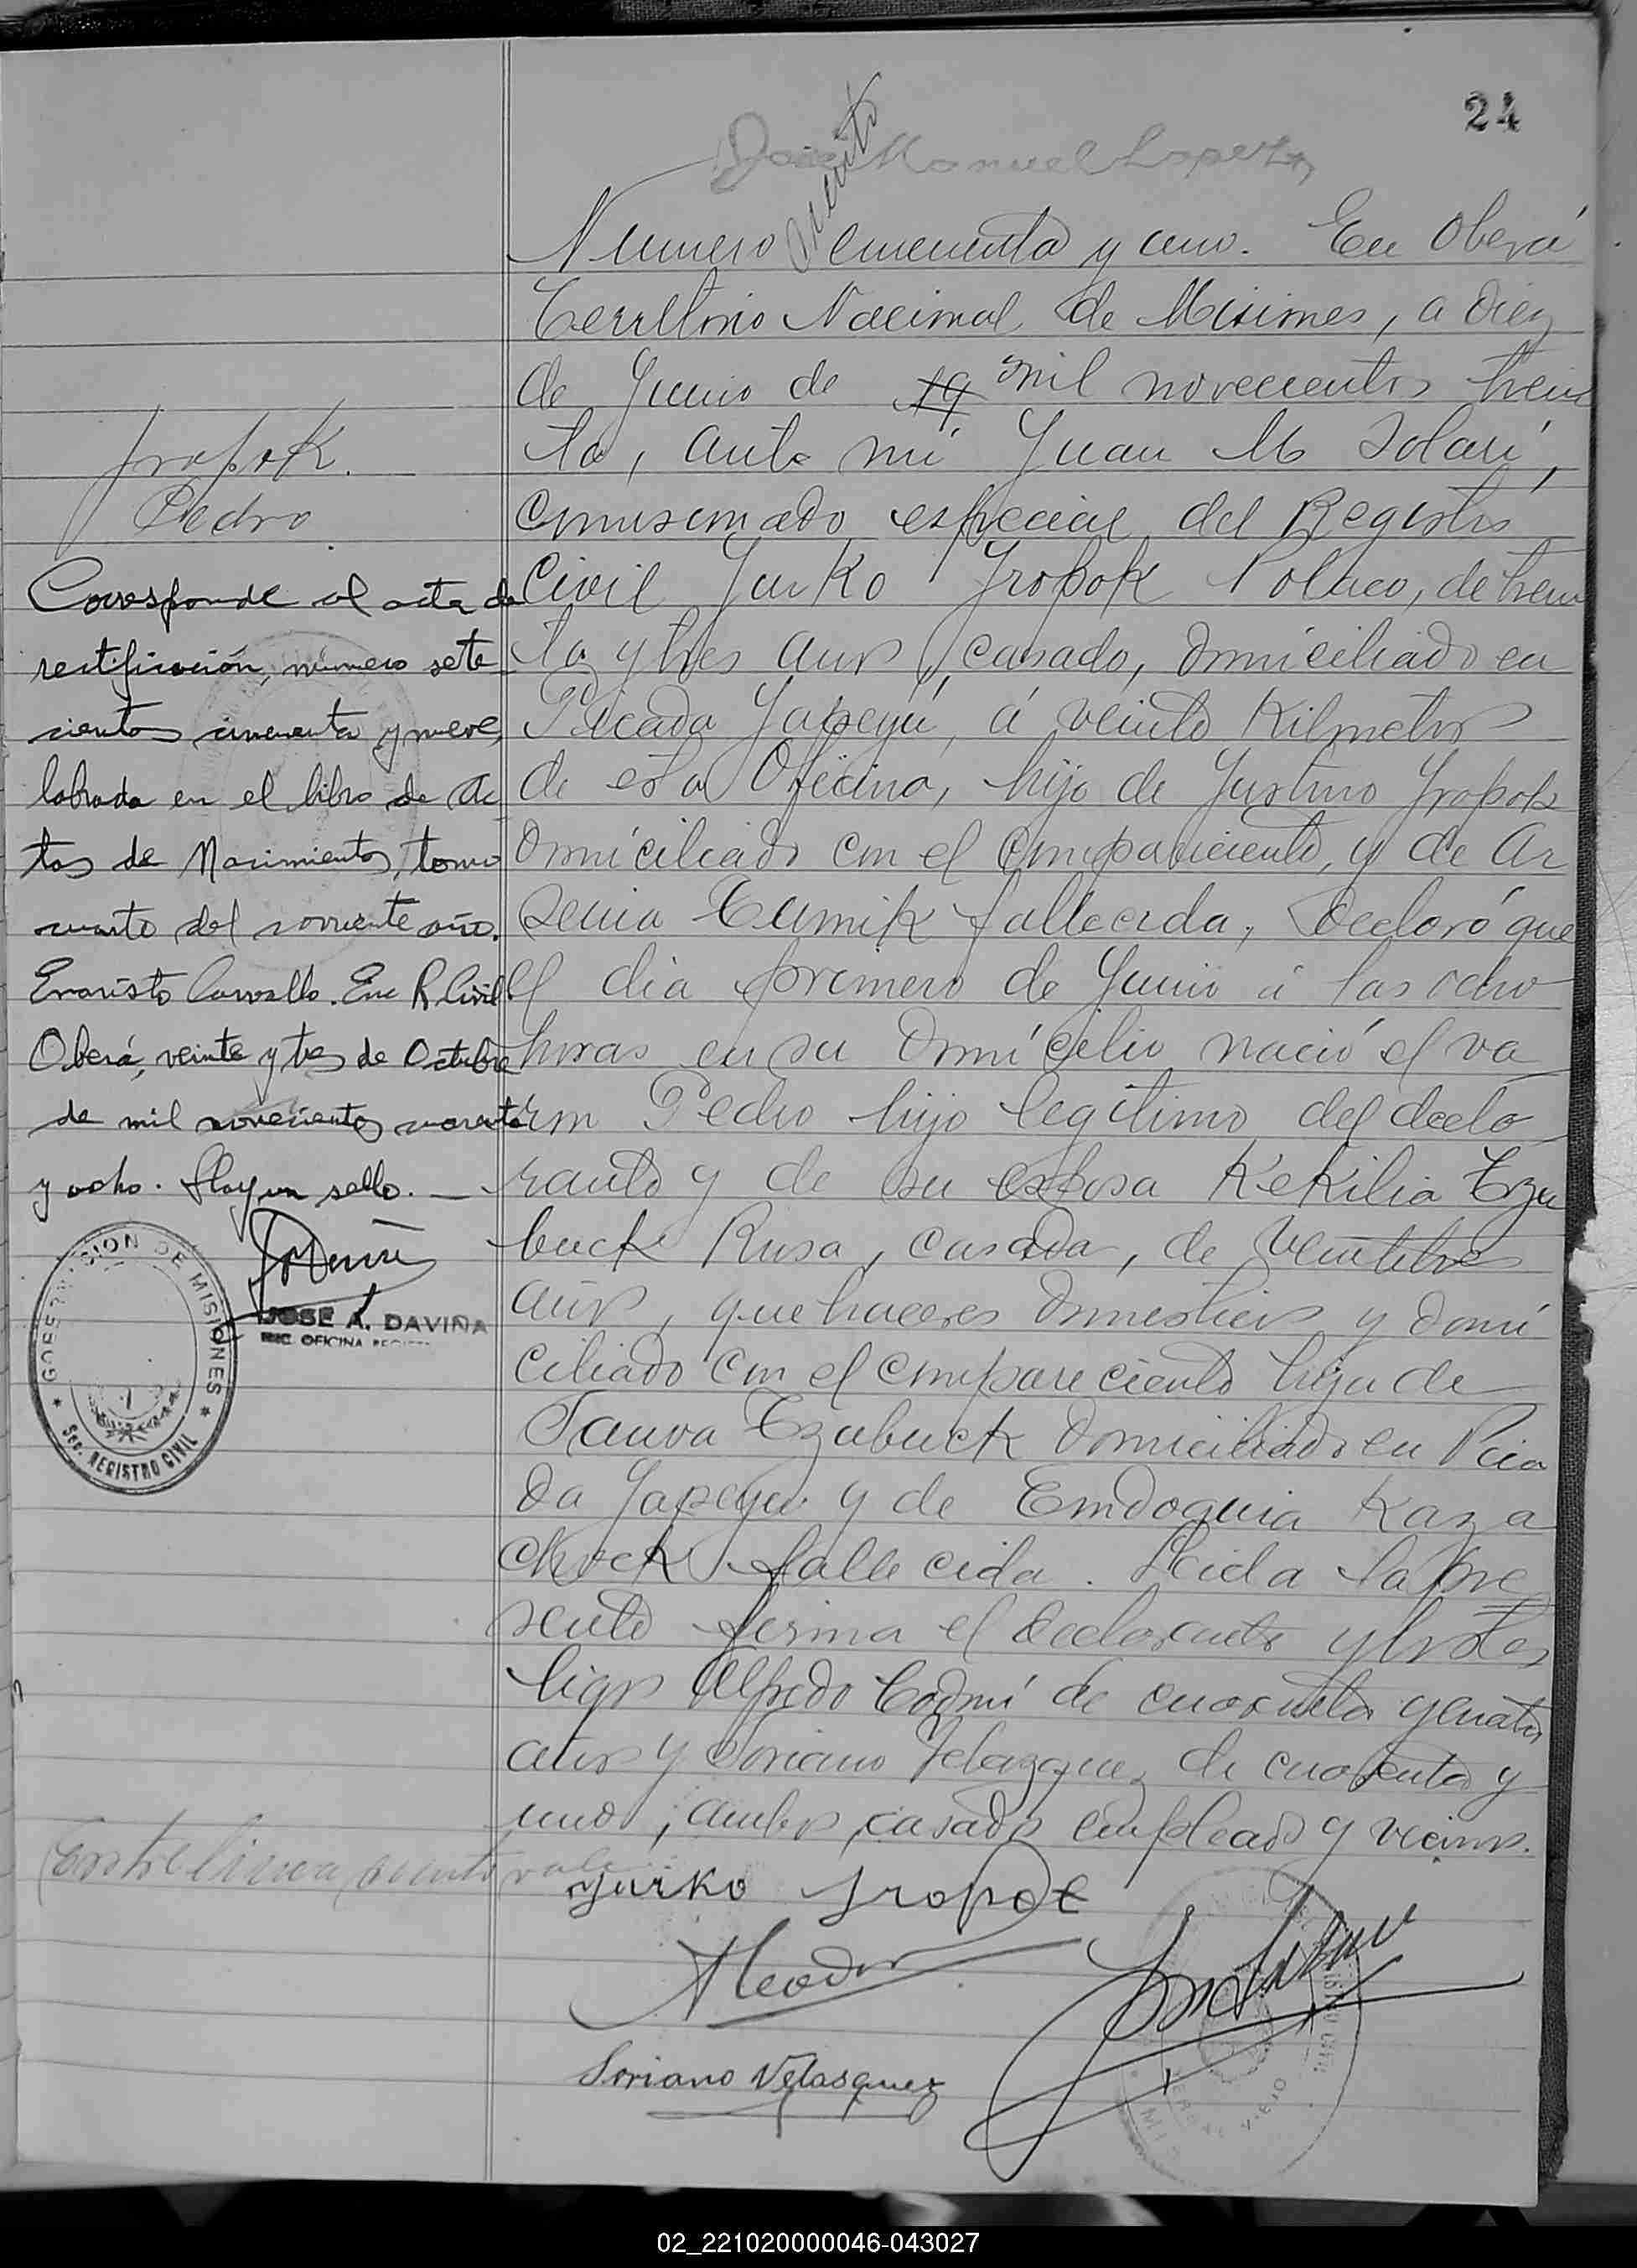 24
Jose Manuel Lopez
ciento
Numero cincuenta y uno. En Oberá
Territorio Nacional de Misiones, a diez
de Junio de 19 mil novecientos trein
ta, ante mi Juan M Solari,
comisionado especial del Registro
Civil Jurko Jropok Polaco, de trein
ta y tres años, casado, domiciliado en
Picada Yapeyú, á veinte Kilometros
de esta Oficina, hijo de Justino Jropok
domiciliado con el compareciente, y de Ar
senia Tumik fallecida, declaró que
el dia primero de Junio á las ocho
horas en su domicilio nació el va
ron Pedro hijo legitimo del decla
rante y de su esposa Kekilia Tzu
buck Rusa, casada, de veintitres
años, quehaceres domesticos y domi
ciliado con el compareciente hija de
Tzubuck domiciliado en Pica
da Yapeyu y de Emdoquia Kaza
chock fallecida. Leida la pre
sente firma el declarante y los tes
tigos Alfredo de cuarenta y cuatro
años y Soriano Velazquez de cuarenta y
uno, ambos casados empleados y vecinos.
Jurko Jropok
Soriano Velasquez
Jropok.
Pedro
Corresponde al acta de
rectificación, número sete
cientos cincuenta y nueve,
labrada en el libro de Ac
tas de Nacimientos, tomo
cuarto del corriente año.
Evaristo Carvallo. Enc R. Civil.
Oberá, veinte y tres de Octubre
de mil novecientos cuarenta
y ocho. Hay un sello.—
GOBERNACION DE MISIONES
Sec. REGISTRO CIVIL
JOSE A. DAVIÑA
OFICINA
Entrelinea ciento vale
02_221020000046-043027